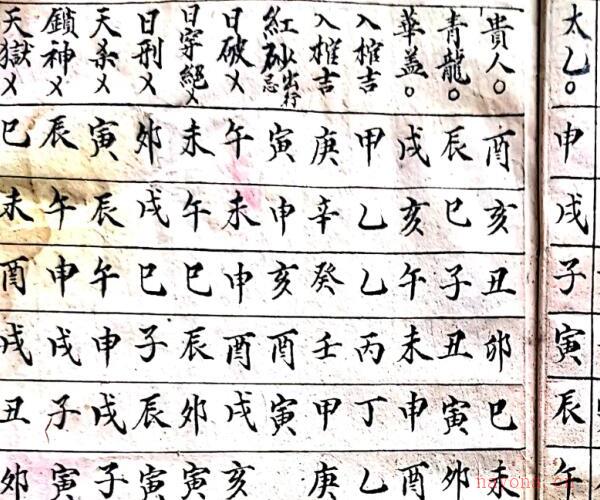 太乙。申戌子寅辰午
貴人。酉亥丑卯巳未
青龍。辰巳子丑寅卯
華蓋。戌亥午未申酉
入棺吉甲乙乙丙丁乙
入棺吉庚辛癸壬甲庚
紅砂出行忌寅申亥酉寅
日破✕午未申酉戌亥
日穿絕✕未午巳辰卯寅
日刑✕卯戌巳子辰寅
天杀✕寅辰午申戌子
鎖神✕辰午申戌子寅
天獄✕巳未酉戌丑卯